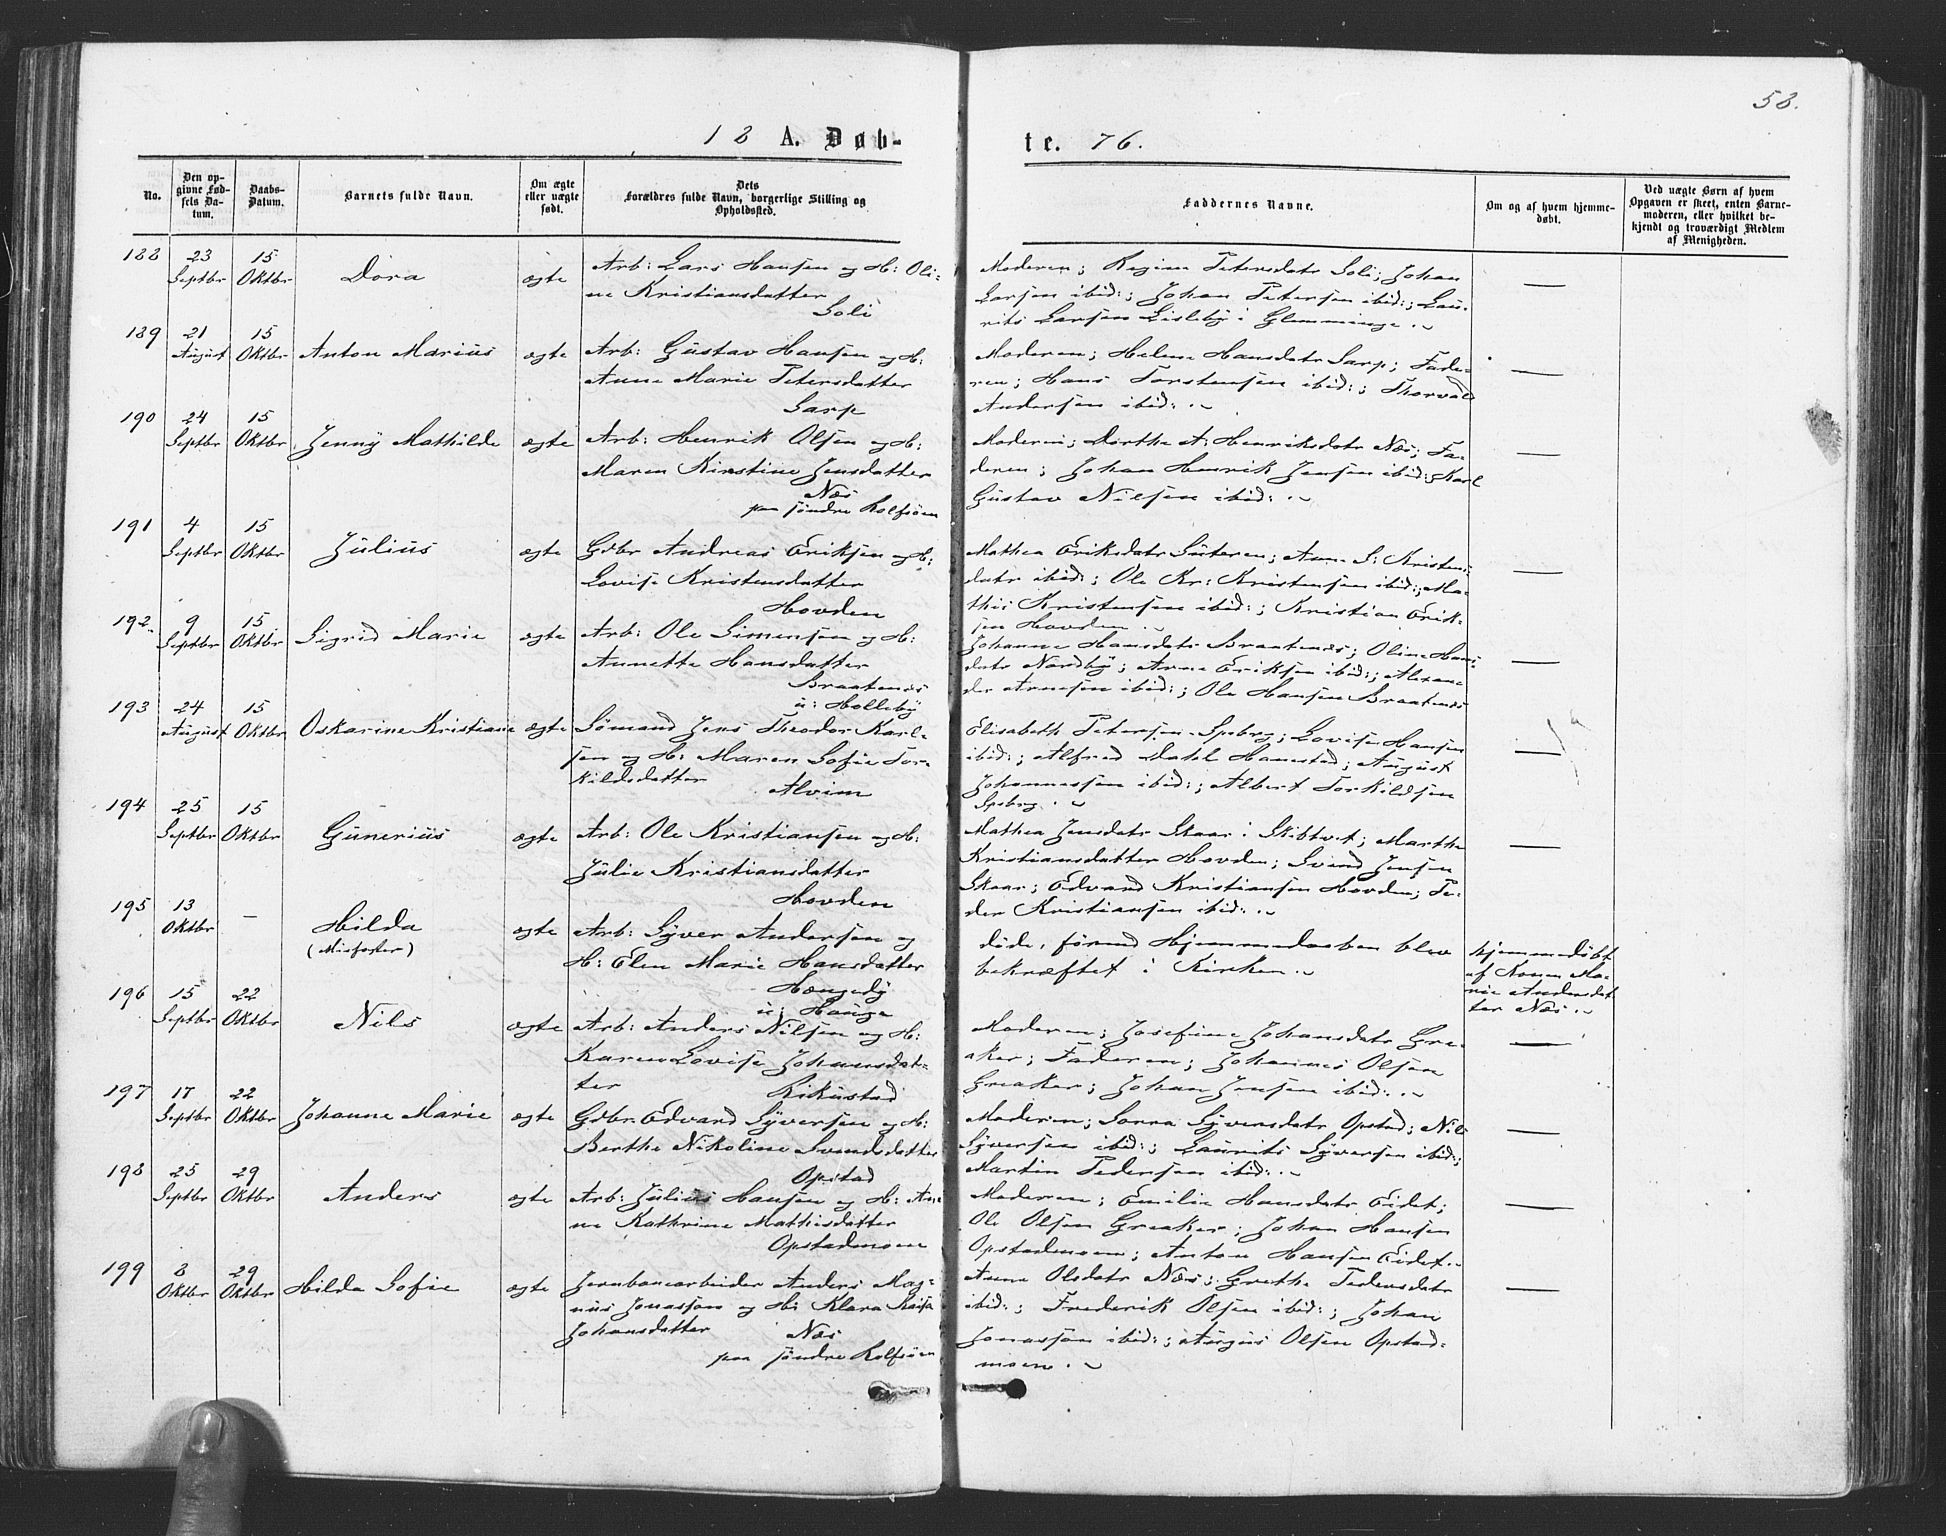 58.
18 A. Døb-
te. 76.
No.
Den op-
givne Fød-
sels Da-
tum.
Daabs-
Datum.
Barnets fulde Navn.
Om ægte
eller uægte
født.
Dets
Forældres fulde Navn, borgerlige Stilling og
Opholdssted.
Faddernes Navne.
Om og af hvem hjemme-
døbt.
Ved uægte Børn af hvem
Opgaven er skeet, enten Barne-
moderen, eller hvilket be-
kjendt og troværdigt Medlem
af Menigheden.
188 23 15
Septbr Oktbr Dora ægte
Arb: Lars Hansen og H: Oli-
ne Kristiansdatter
Soli
Moderen; Regine Petersdatr Soli; Johan
Larsen ibid:; Johan Petersen ibid:; Lau-
rits Larsen Lisleby i Glemminge.
189 21 15
August Oktbr Anton Marius ægte
Arb: Gustav Hansen og H:
Anne Marie Petersdatter
Sarp
Moderen; Helene Hansdatr Sarp; Fade-
ren; Hans Torstensen ibid:; Thorvald
Andersen ibid:.
190 24 15
Septbr Oktbr Jenny Mathilde ægte
Arb: Henrik Olsen og H:
Maren Kirstine Jensdatter
Næs
paa søndre Rolfsöen
Moderen; Dorthe A: Henriksdatr Næs; Fa-
deren; Johan Henrik Jensen ibid:; Karl
Gustav Nilsen ibid:.
191 4 15
Septbr Oktbr Julius ægte
Gdbr Andreas Eriksen og H:
Lovise Kristensdatter
Hovden
Mathea Eriksdatr Sæteren; Anne S: Kristens-
datr ibid:; Ole Kr: Kristensen ibid:; Ma-
this Kristensen ibid:; Kristian Erik-
sen Hovden.
192. 9 15
Septbr Oktbr Sigrid Marie ægte
Arb: Ole Simensen og H:
Annette Hansdatter
Braatenæs
u: Holleby
Johanne Hansdatr Braatenæs; Oline Hans-
datr Nordby; Arne Eriksen ibid:; Alexan-
der Arnesen ibid:; Ole Hansen Braatenæs
193 24 15
August Oktbr Oskarine Kristiane ægte
Sömand Jens Theodor Karl-
sen og H: Maren Sofie Tor-
kildsdatter
Alvim
Elisabeth Petersen Spsbrg; Lovise Hansen
ibid:; Alfred Dahl Hanestad; August
Johannessen ibid:; Albert Torkildsen
Spsbrg.
194 25 15
Septbr Oktbr Gunerius ægte
Arb: Ole Kristiansen og H:
Julie Kristiansdatter
Hovden
Mathea Jensdatr Skaar i Skibtvet; Marthe
Kristiansdatter Hovden; Svend Jensen
Skaar; Edvard Kristiansen Hovden; Pe-
der Kristiansen ibid:.
195 13
Oktbr — Hilda
(Misfoster) ægte
Arb: Syver Andersen og
H: Elen Marie Hansdatter
Hængedy
u: Hauge
döde, förend Hjemmedaaben blev
bekræftet i Kirken.
hjemmedöbt
af Konen Ma-
rie Andersdat-
ter Næs.
196 15 22
Septbr Oktbr Nils ægte
Arb: Anders Nilsen og H:
Karen Lovise Johansdat-
ter Rikustad
Moderen; Josefine Johansdatr Gre-
aker; Faderen; Johannes Olsen
Greaker; Johan Jensen ibid:.
197 17 22
Septbr Oktbr Johanne Marie ægte
Gdbr. Edvard Syversen og H:
Berthe Nikoline Svendsdatter
Opstad
Moderen; Sorra Syversdatr Opstad; Nils
Syversen ibid:; Laurits Syversen ibid:;
Martin Pedersen ibid:.
198 25 29
Septbr Oktbr Anders ægte
Arb: Julius Hansen og H: An-
ne Kathrine Mathisdatter
Opstadmoen
Moderen; Emilie Hansdatr Eidet;
Ole Olsen Greaker; Johan Hansen
Opstadmoen; Anton Hansen Eidet.
199 8 29
Oktbr Oktbr Hilda Sofie ægte
Jernbanearbeider Anders Mag-
nus Jonasson og H: Klara Kajsa
Johansdatter Næs
paa søndre Rolfsöen
Anne Olsdatr Næs; Grethe Pedersdatr
ibid:; Frederik Olsen ibid:; Johan
Jonasson ibid:; August Olsen Opstad-
moen.